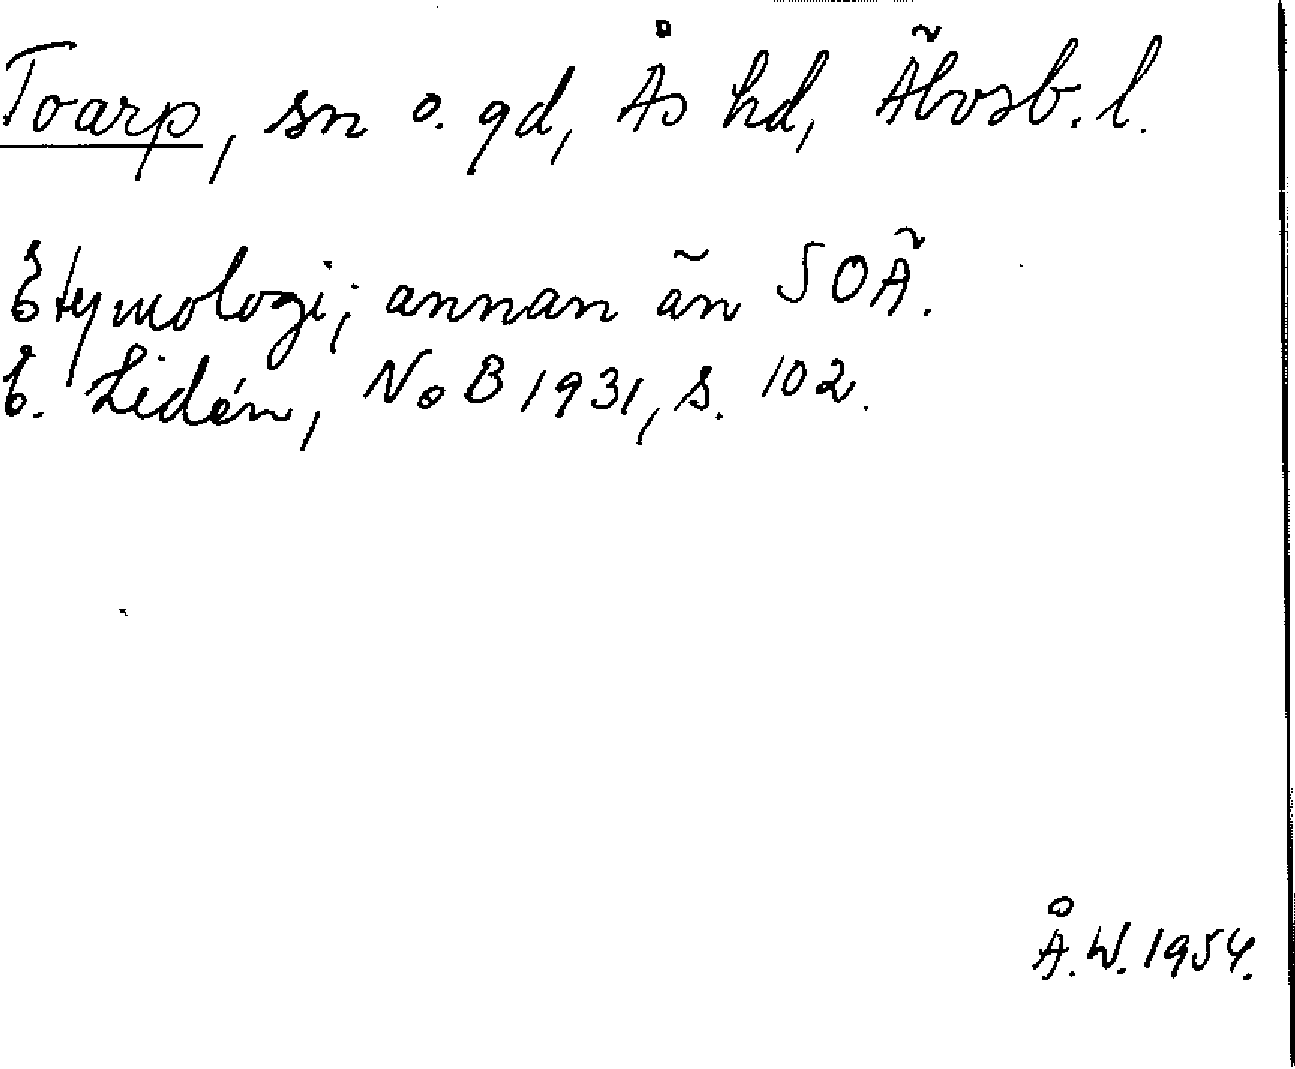 Toarp, sn o. gd, Ås hd, Älvsb. l.
Etymologi; annan än SOÄ.
E. Lidén, NoB 1931, s. 102.
Å.W. 1954.